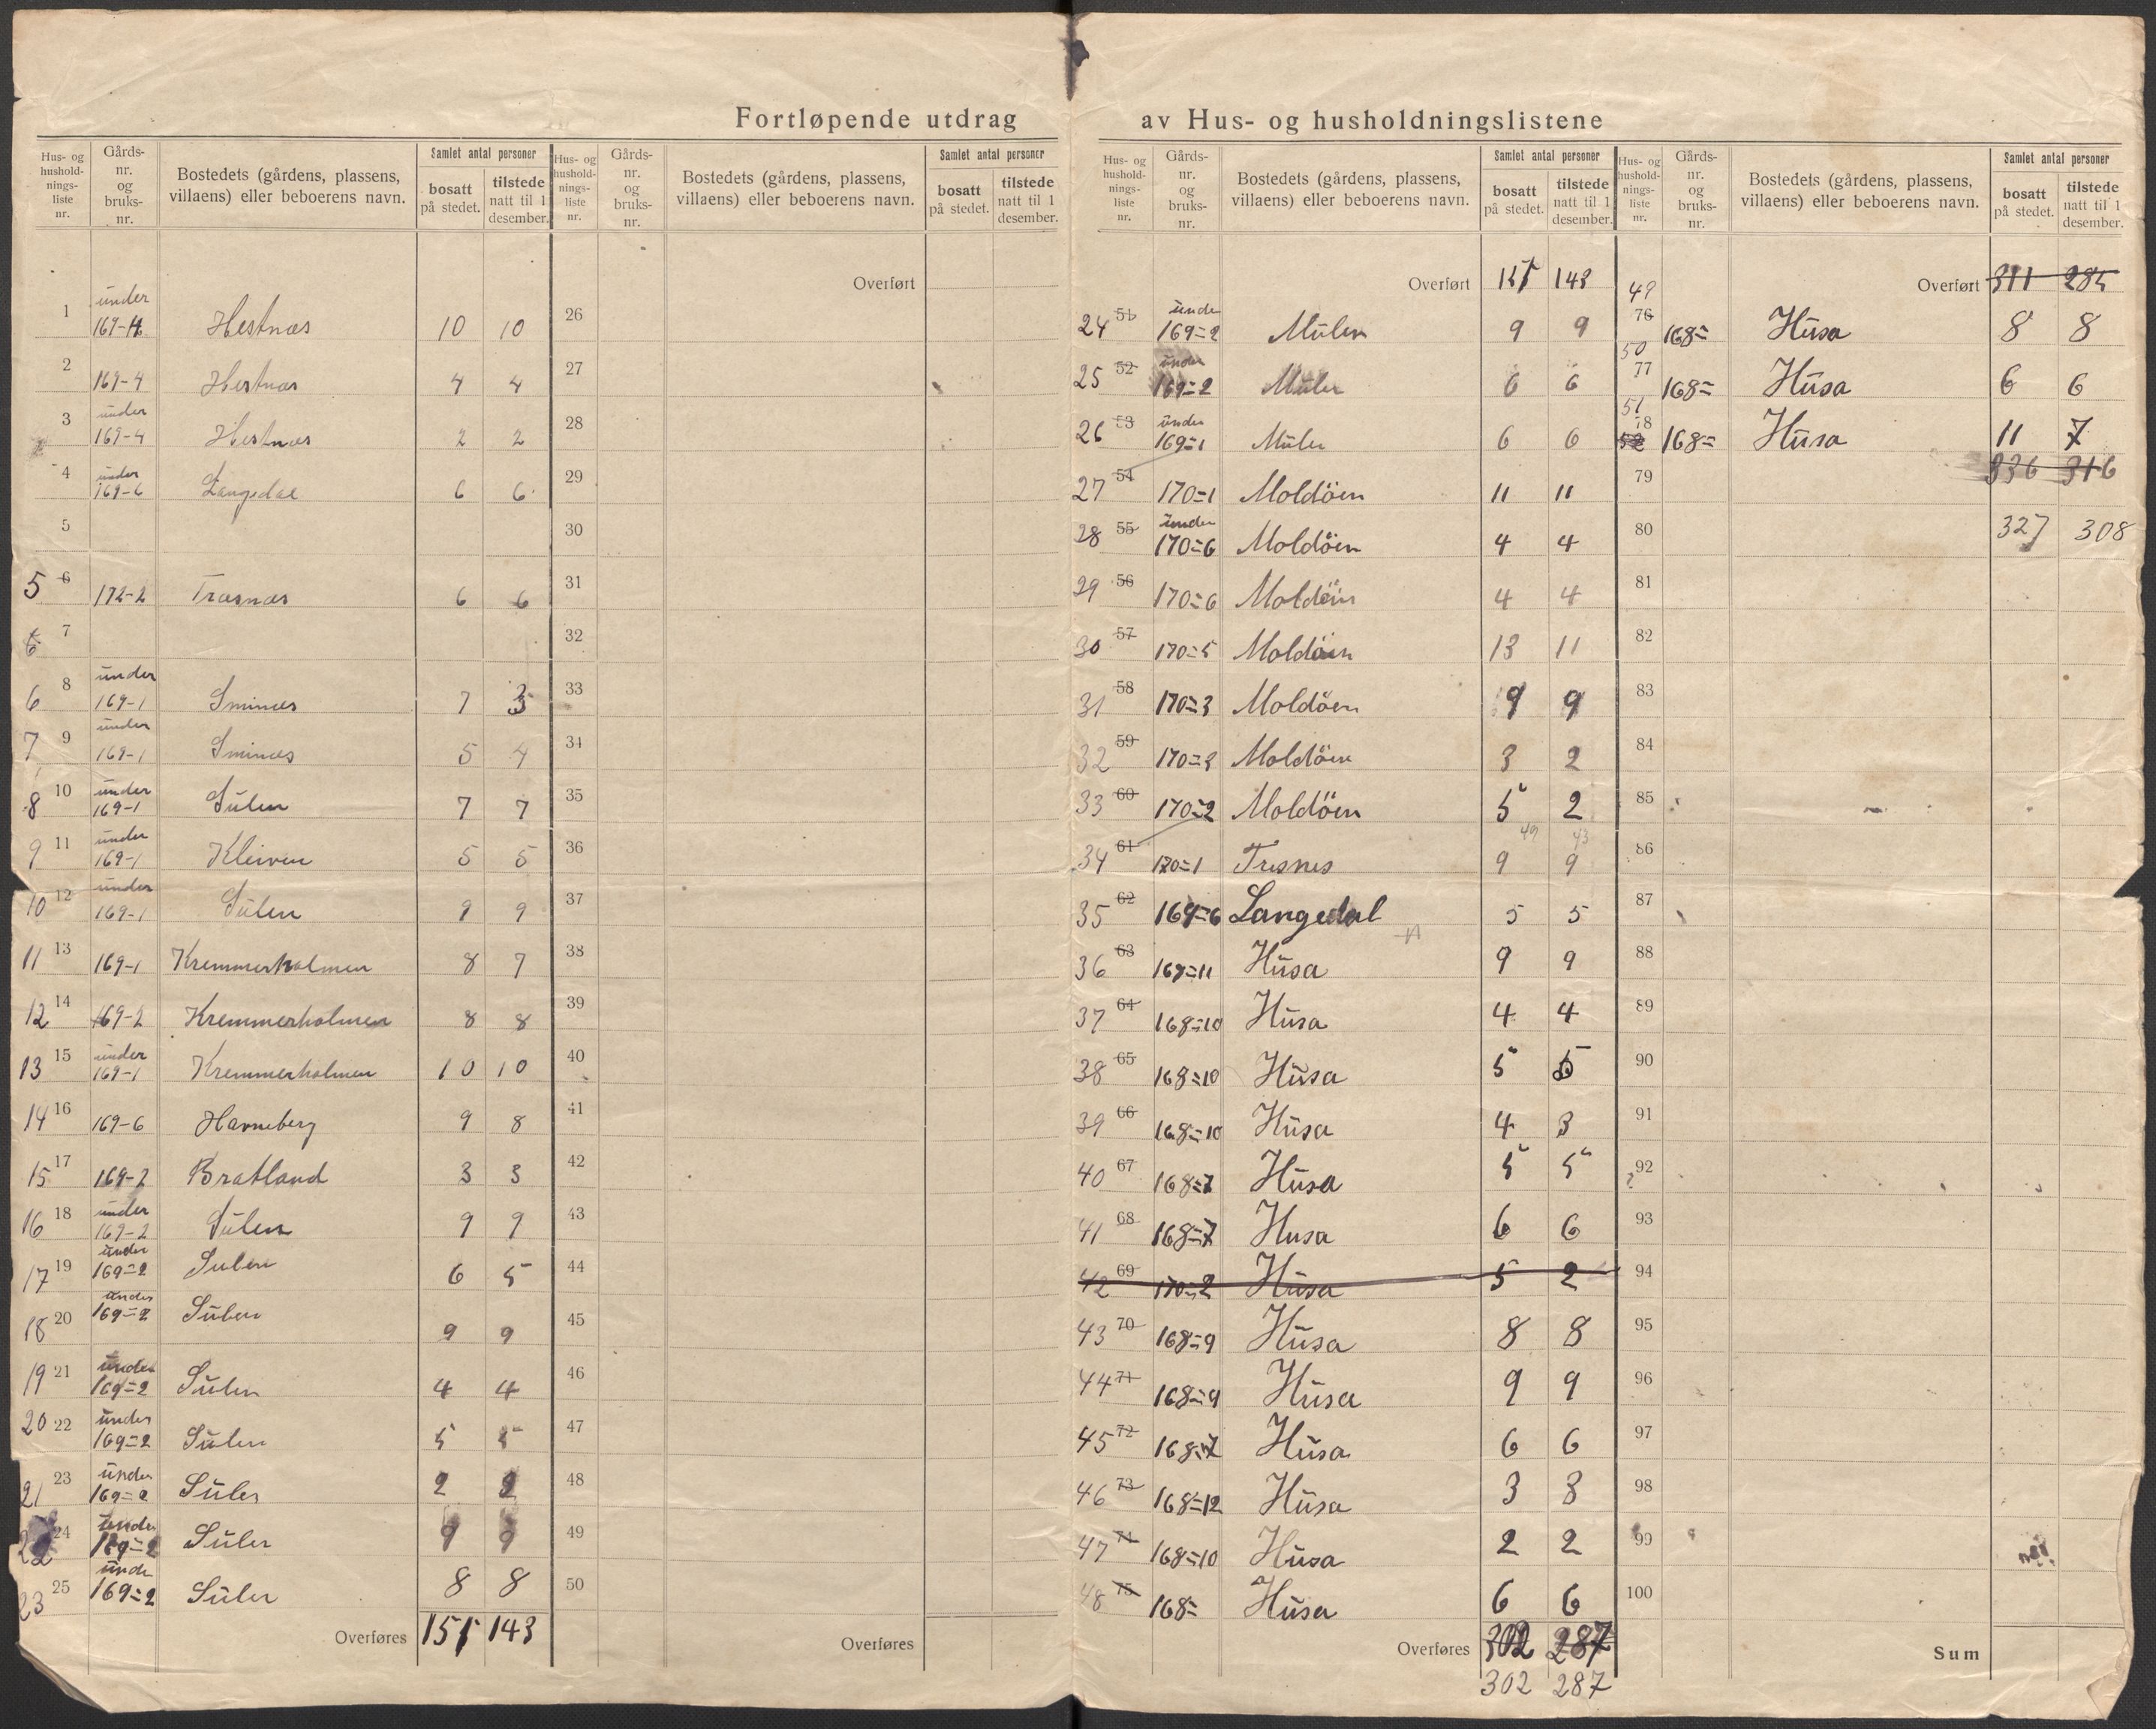 Fortløpende utdrag av Hus- og husholdningslistene
Hus- og husholdnings- liste nr. | Gårds- nr. og bruks- nr. | Bostedets (gårdens, plassens, villaens) eller beboerens navn. | Samlet antal personer | bosatt på stedet. | tilstede natt til 1 desember.
1 under 169-4 Hestnæs 10 10
2 169-4 Hestnæs 4 4
3 under 169-4 Hestnæs 2 2
4 under 169-6 Langedal 6 6
5
5 6 172-2 Træsnæs 6 6
6 7
6 8 under 169-1 Sminæs 7 3
7 9 under 169-1 Sminæs 5 4
8 10 under 169-1 Sulen 7 7
9 11 under 169-1 Kleiven 5 5
10 12 under 169-1 Sulen 9 9
11 13 169-1 Kremmerholmen 8 7
12 14 169-2 Kremmerholmen 8 8
13 15 under 169-1 Kremmerholmen 10 10
14 16 169-6 Havneberg 9 8
15 17 169-2 Bratland 3 3
16 18 under 169-2 Sulen 9 9
17 19 under 169=2 Sulen 6 5
18 20 under 169=2 Sulen 9 9
19 21 under 169=2 Sulen 4 4
20 22 under 169=2 Sulen 5 5
21 23 under 169=2 Sulen 2 2
22 24 under 169=2 Sulen 9 9
23 25 under 169=2 Sulen 8 8
Overføres 155 143
Hus- og husholdnings- liste nr. | Gårds- nr. og bruks- nr. | Bostedets (gårdens, plassens, villaens) eller beboerens navn. | Samlet antal personer | bosatt på stedet. | tilstede natt til 1 desember.
Overført
26
27
28
29
30
31
32
33
34
35
36
37
38
39
40
41
42
43
44
45
46
47
48
49
50
Overføres
Hus- og husholdnings- liste nr. | Gårds- nr. og bruks- nr. | Bostedets (gårdens, plassens, villaens) eller beboerens navn. | Samlet antal personer | bosatt på stedet. | tilstede natt til 1 desember.
Overført 155 143
24 51 unde 169=2 Mulen 9 9
25 52 under 169=2 Mulen 6 6
26 53 under 169=1 Mulen 6 6
27 54 170=1 Moldöen 11 11
28 55 under 170=6 Moldöen 4 4
29 56 170=6 Moldöen 4 4
30 57 170=5 Moldöen 13 11
31 58 170=3 Moldöen 9 9
32 59 170=3 Moldöen 3 2
33 60 170=2 Moldöen 5 2
49 43
34 61 170=1 Tresnes 9 9
35 62 169=6 Langedal 5 5
36 63 169=11 Husa 9 9
37 64 168=10 Husa 4 4
38 65 168=10 Husa 5 5
39 66 168=10 Husa 4 3
40 67 168=7 Husa 5 5
41 68 168=7 Husa 6 6
42 69 170=2 Husa 5 2
43 70 168=9 Husa 8 8
44 71 168=9 Husa 9 9
45 72 168=7 Husa 6 6
46 73 168=12 Husa 3 8
47 74 168=10 Husa 2 2
48 75 168= Husa 6 6
Overføres 302 287
302 287
Hus- og husholdnings- liste nr. | Gårds- nr. og bruks- nr. | Bostedets (gårdens, plassens, villaens) eller beboerens navn. | Samlet antal personer | bosatt på stedet. | tilstede natt til 1 desember.
Overført 311 285
49 76 168= Husa 8 8
50 77 168= Husa 6 6
51 78 52 168= Husa 11 7
336 316
79
80 327 308
81
82
83
84
85
86
87
88
89
90
91
92
93
94
95
96
97
98
99
100
Sum